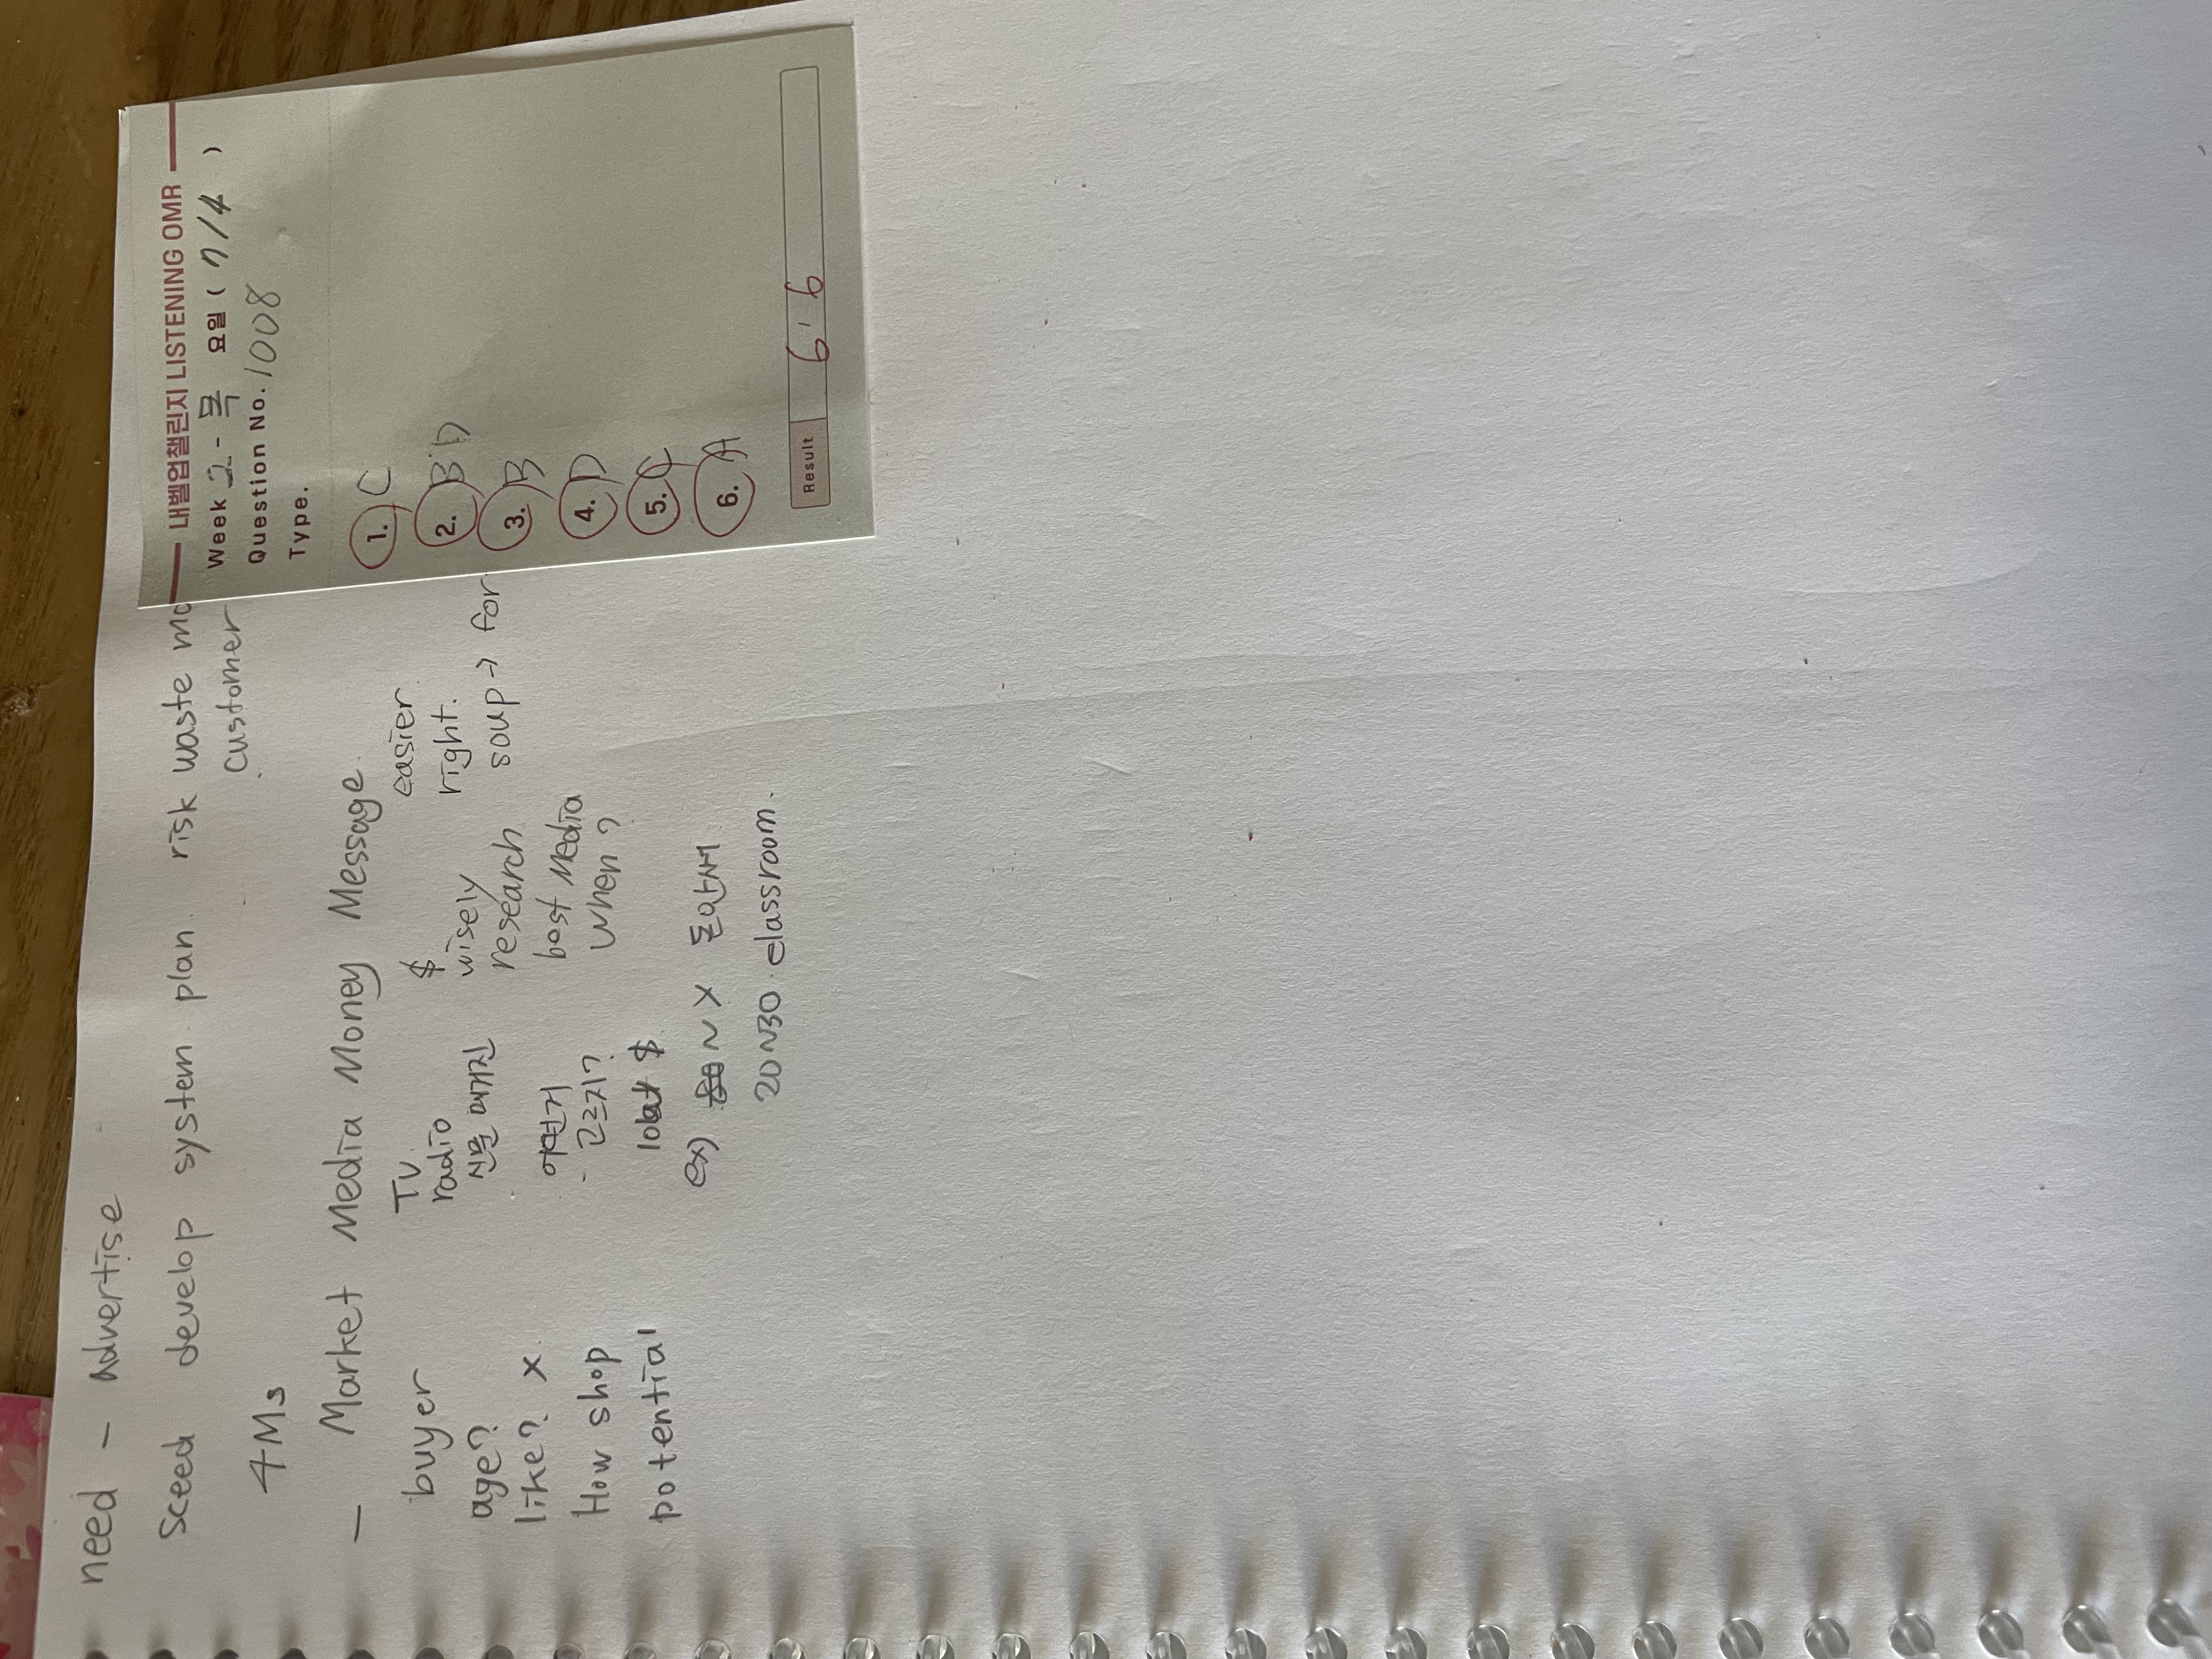 need - Advertise
Sceed develop system plan. risk waste mo
customer
4Ms
- Market Media Money Message.
buyer
age?
like? x
How shop
potential
TV.
radio
신문 매거진
어떤거
고르지?
$
ex) ~ X 도아서
20~30 classroom.
$
wisely
research
best Media
when?
easier.
right.
soup → for
내벨업챌린지 LISTENING OMR
Week 2 - 목 요일 ( 7/4 )
Question No. 1008
Type.
1. C
2. B D
3. B
4. D
5. C
6. A
Result 6 ' 6